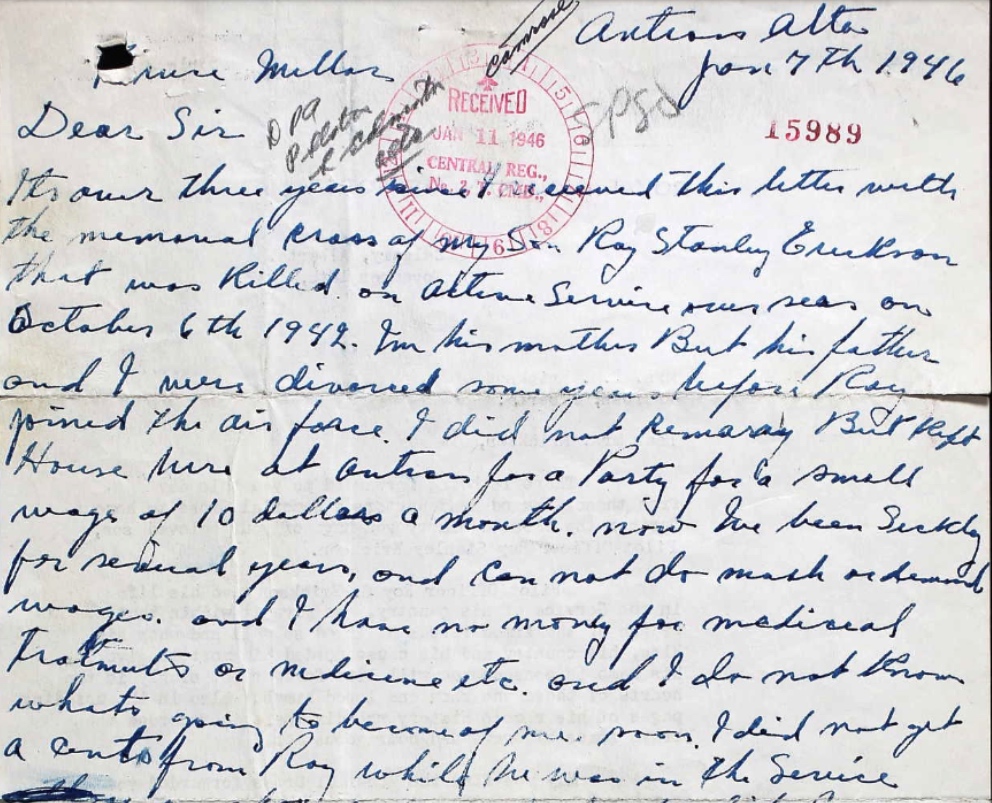 Camrose
Antross Alta
Jan 7th 1946
Millar
Dear Sir
RECEIVED
JAN 11 1946
CENTRAL REG.,
15989
Its over three years since I received this letter with
the memorial cross of my Son Roy Stanley Erickson
that was Killed on active Service over seas on
October 6th 1942. Im his mother But his father
and I were divorced some years before Roy
joined the air force. I did not Remaray But Kept
House here at Antross for a Party for a small
wage of 10 dollars a month. now Ive been Sickly
for several years, and can not do much or demand
wages. and I have no money for mediceal
Tratments or medicine etc. and I do not Know
whats going to become of me soon. I did not get
a cent from Roy while he was in the Service